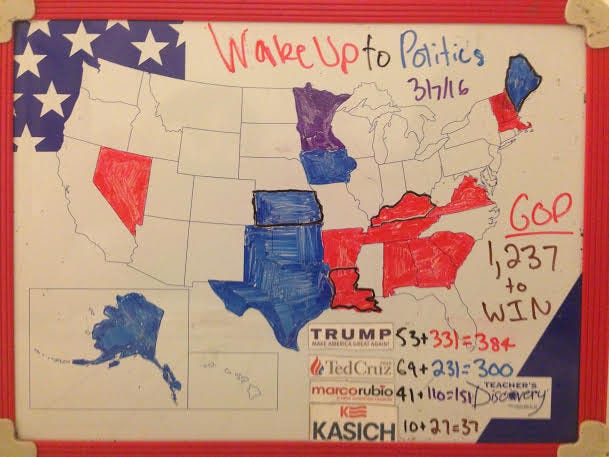 Wake Up to Politics
3/7/16
GOP
1,237
to
WIN
TRUMP 53+331=384
MAKE AMERICA GREAT AGAIN!
TedCruz 69+231=300
marcorubio 41+110=151
KASICH 10+27=37
TEACHER'S
Discovery